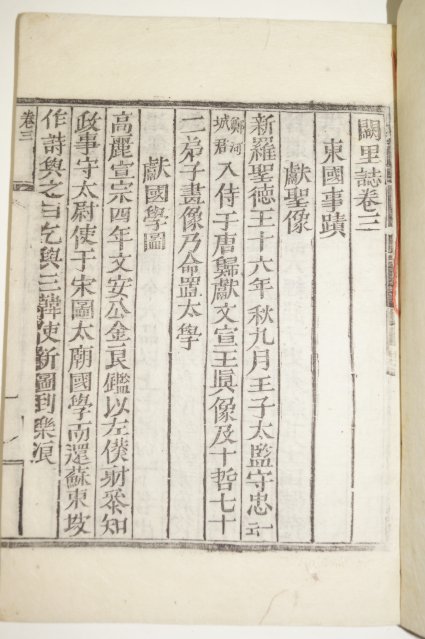 闕里誌卷三
東國事蹟
獻聖像
新羅聖德王十六年秋九月王子太監守忠一云
鄭河城君入侍于唐歸獻文宣王眞像及十哲七十
二弟子畫像乃命置太學
獻國學圖
高麗宣宗四年文安公金良鑑以左僕射叅知
政事守太尉使于宋圖太廟國學而還蘇東坡
作詩與之曰乞與三韓使新圖到樂浪
卷三